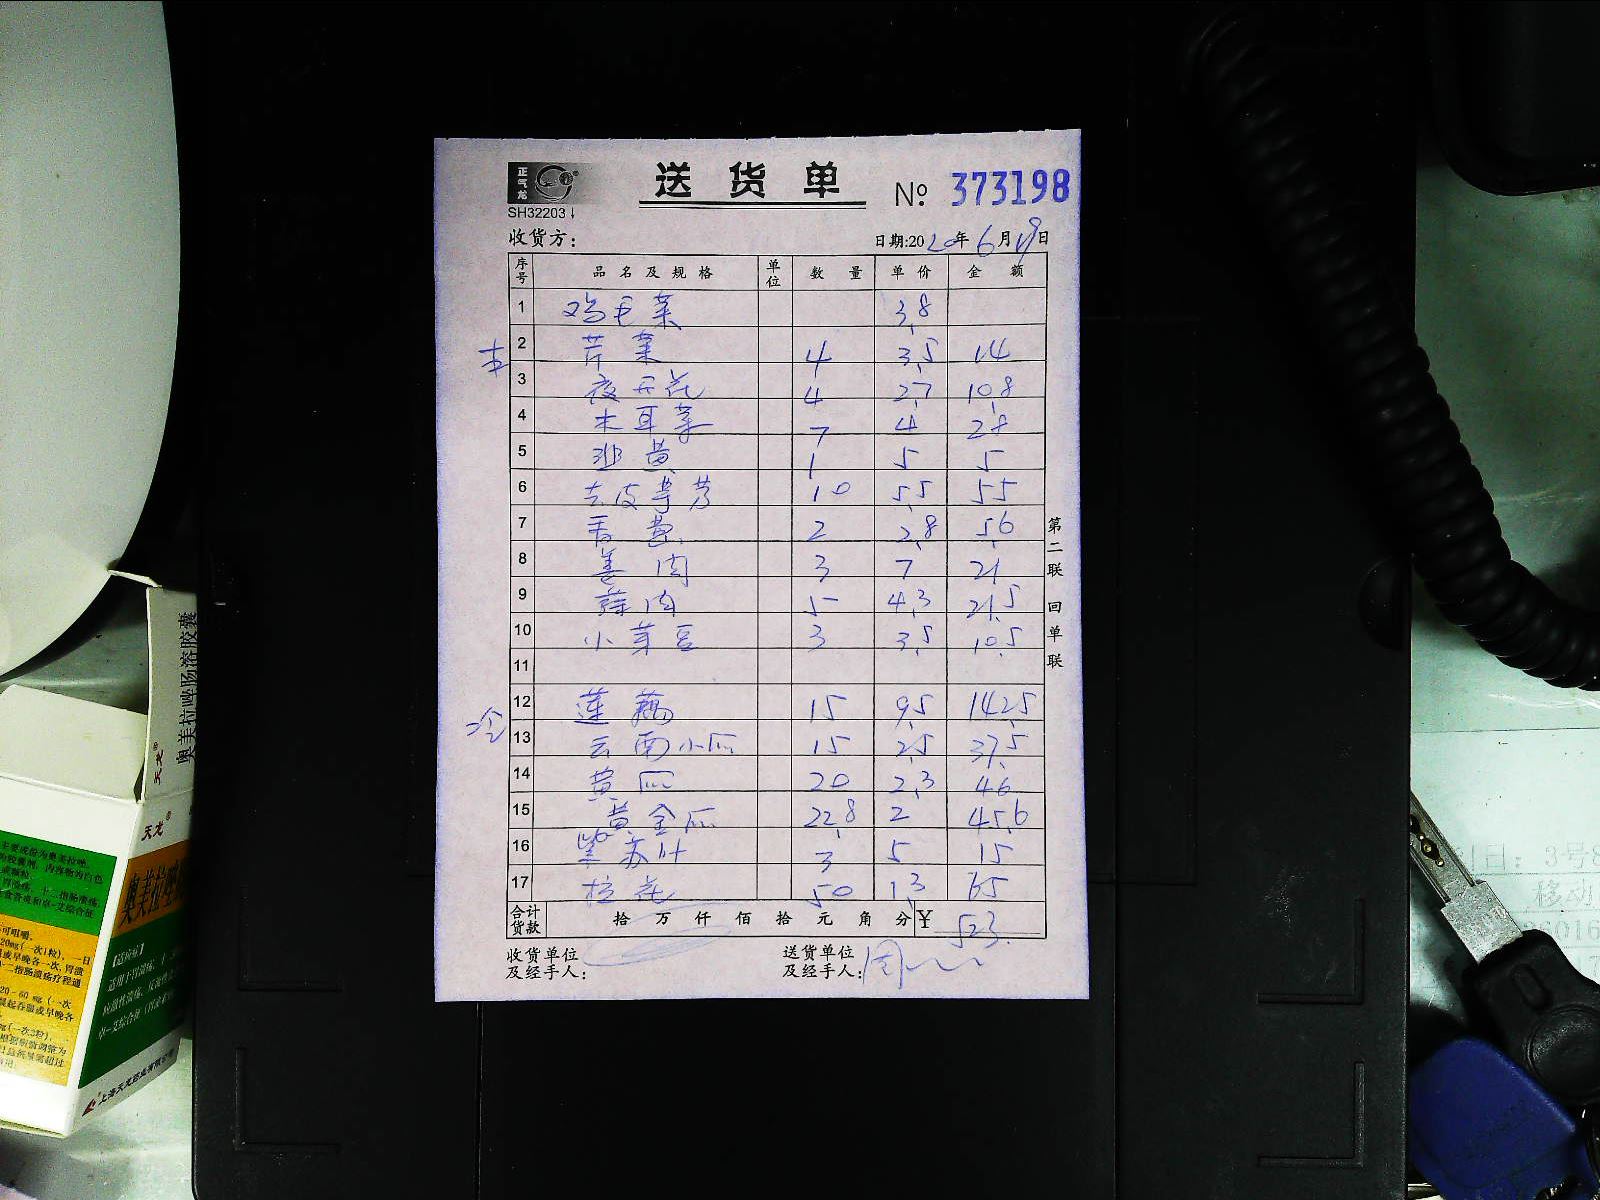 正气龙
送货单
№ 373198
SH32203↓
收货方：
日期:2020年6月19日
序号 品名及规格 单位 数量 单价 金额
1 鸡毛菜 3.8
2 芹菜 4 3.5 14
3 夜开花 4 2.7 10.8
4 木耳菜 7 4 28
5 韭黄 1 5 5
6 去皮茡艿 10 5.5 55
7 香 2 2.8 5.6
8 姜肉 3 7 21
9 蒜肉 5 4.3 21.5
10 小芽豆 3 3.5 10.5
11
冷
12 莲藕 15 9.5 142.5
13 云南小瓜 15 2.5 37.5
14 黄瓜 20 2.3 46
15 黄金瓜 22.8 2 45.6
16 紫苏叶 3 5 15
17 拉花 50 1.3 65
合计货款 拾万仟佰拾元角分 ¥ 523.
收货单位及经手人：
送货单位及经手人：周
第二联 回单联
奥美拉唑肠溶胶囊
天龙®
天龙®
奥美拉唑
【适应症】
上海天龙药业有限公司
20mg(一次1粒)，一日
20-60 mg (一次
移动